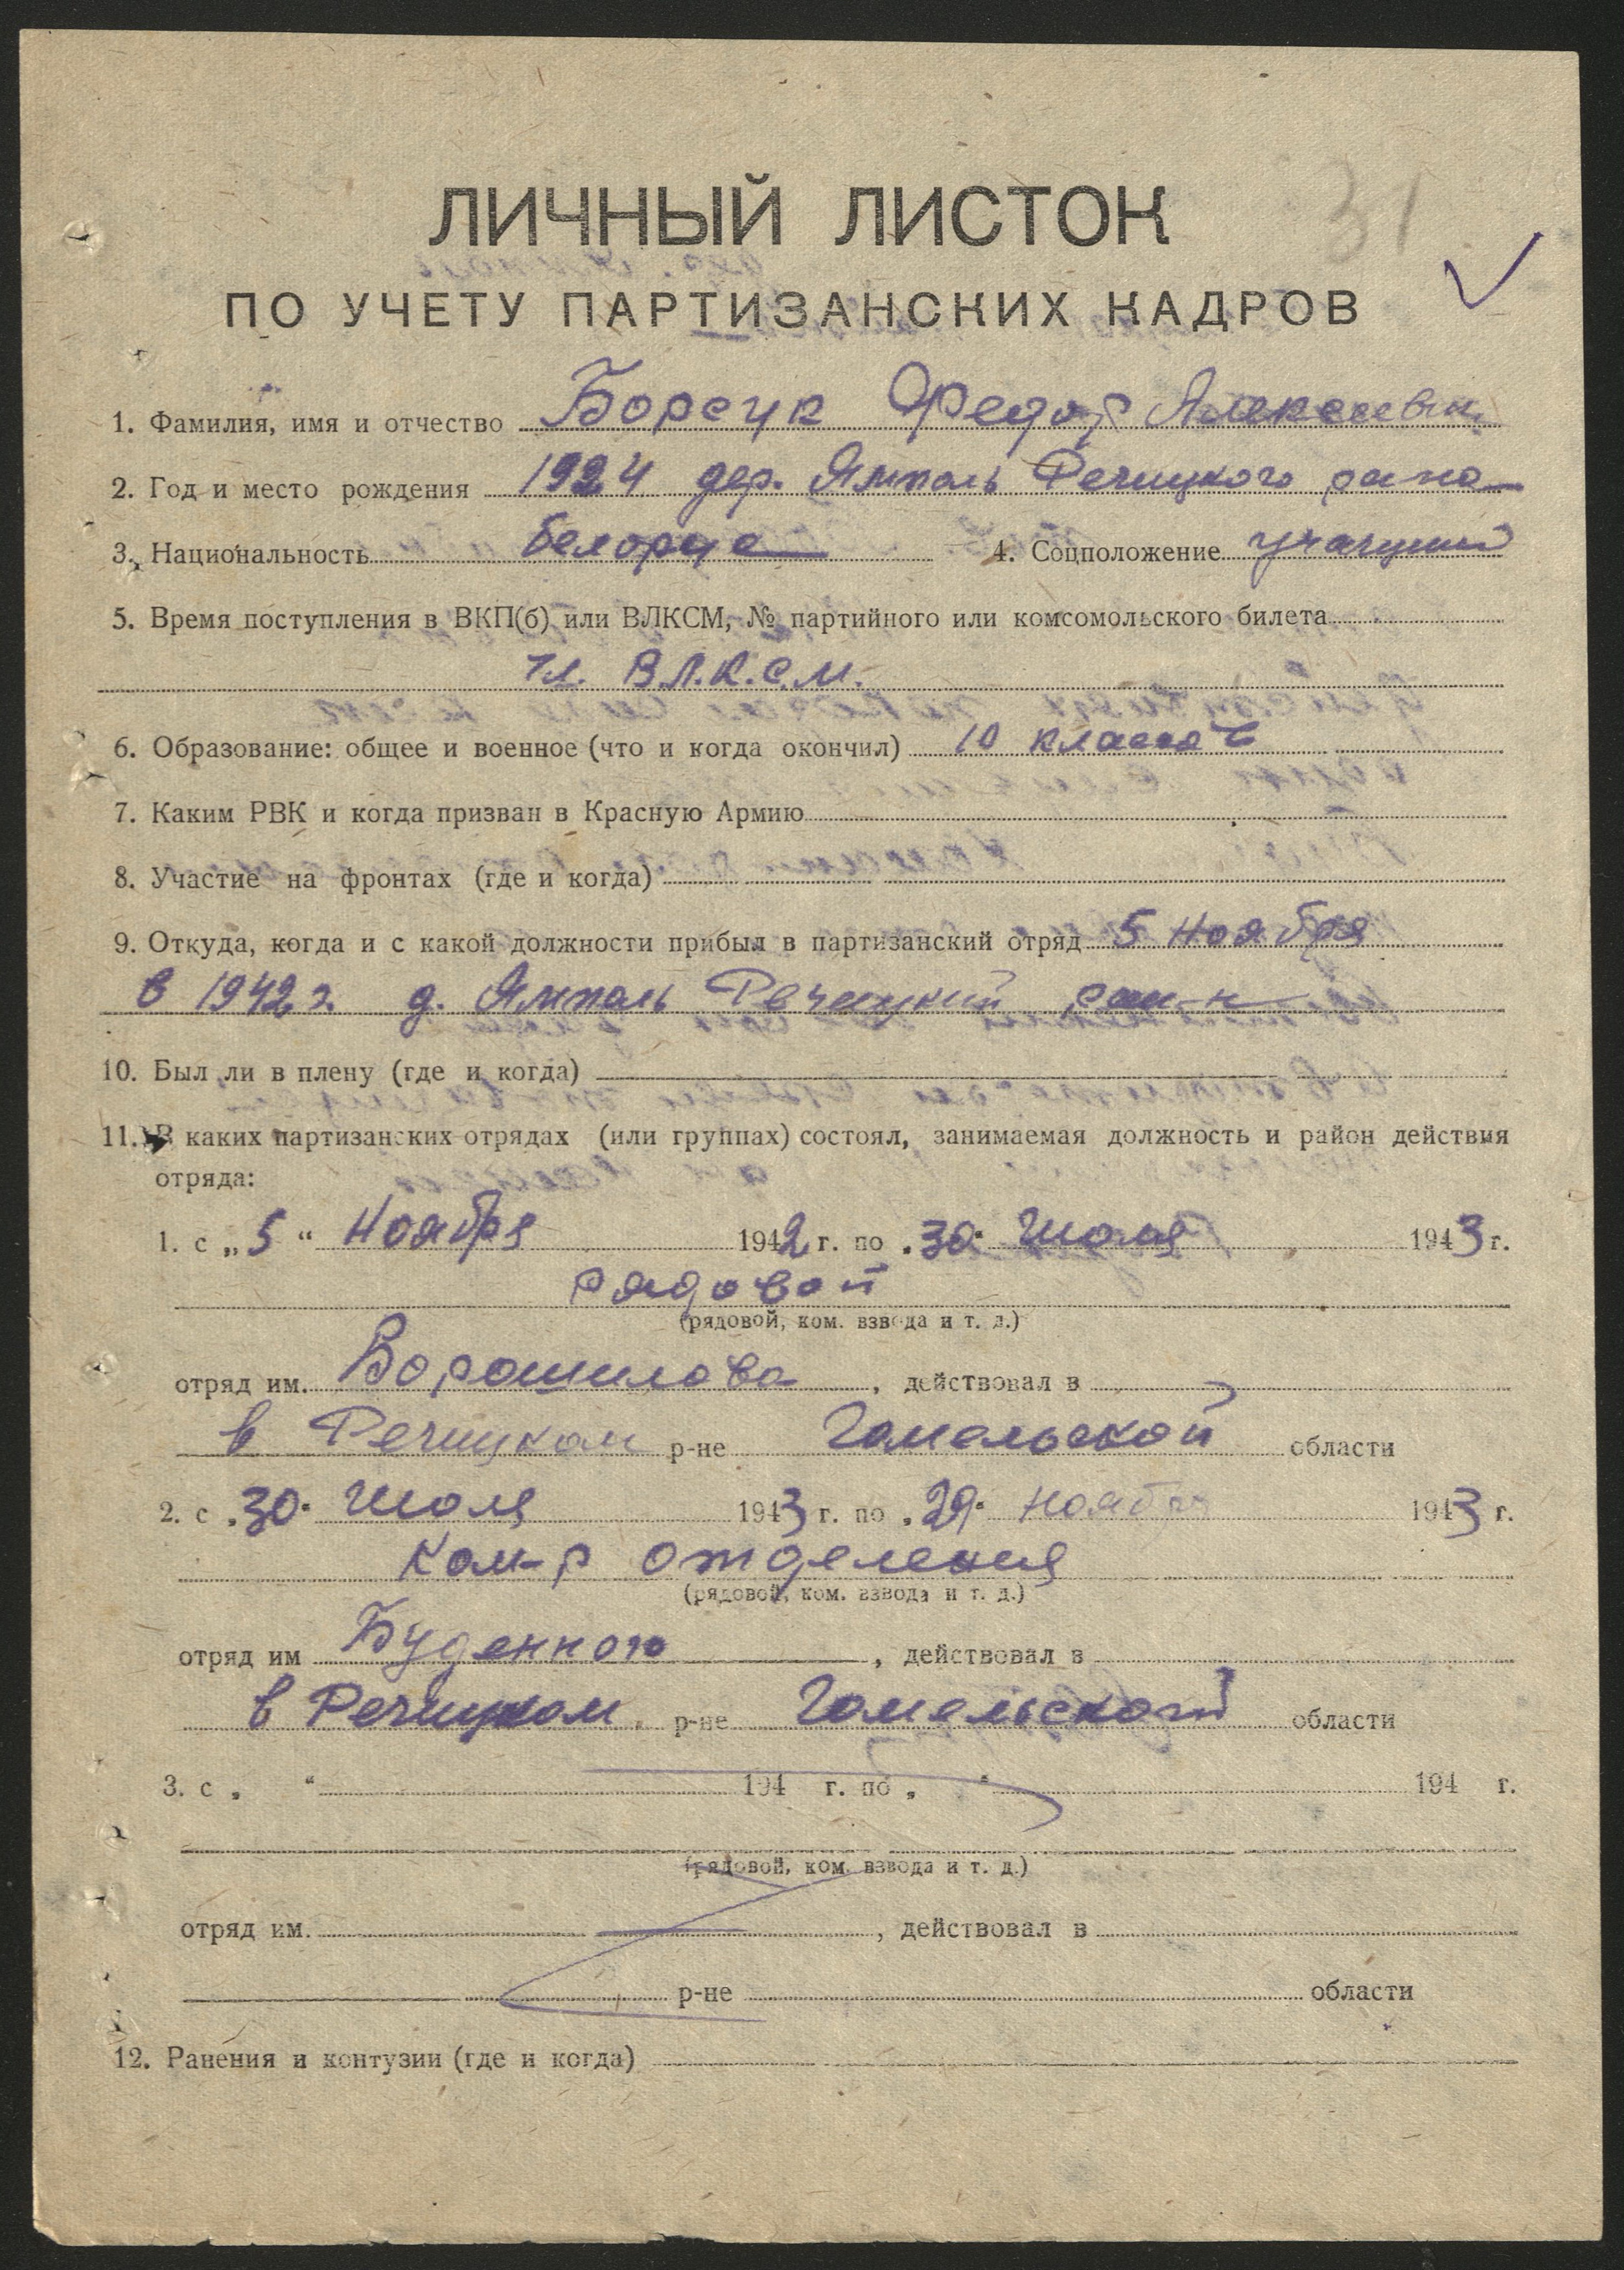 31
ЛИЧНЫЙ ЛИСТОК
ПО УЧЕТУ ПАРТИЗАНСКИХ КАДРОВ
1. Фамилия, имя и отчество Борсук Федор Алексеевич
2. Год и место рождения 1924 дер. Ямполь Речицкого рана
3. Национальность белорус 4. Соцположение учащийся
5. Время поступления в ВКП(б) или ВЛКСМ, № партийного или комсомольского билета
Чл. В.Л.К.С.М.
6. Образование: общее и военное (что и когда окончил) 10 классов
7. Каким РВК и когда призван в Красную Армию
8. Участие на фронтах (где и когда)
9. Откуда, когда и с какой должности прибыл в партизанский отряд 5 ноября
в 1942 г. д. Ямполь Речицкий рай-н
10. Был ли в плену (где и когда)
11. В каких партизанских отрядах (или группах) состоял, занимаемая должность и район действия
отряда:
1. с „5“ Ноября 1942 г. по „30“ Июля 1943 г.
рядовой
(рядовой, ком. взвода и т. д.)
отряд им. Ворошилова, действовал в
в Речицком р-не Гомельской области
2. с „30“ Июля 1943 г. по „29“ ноября 1943 г.
Ком-р отделения
(рядовой, ком. взвода и т. д.)
отряд им Буденного, действовал в
в Речицком р-не Гомельской области
3. с „ “ 194 г. по „ “ 194 г.
(рядовой, ком. взвода и т. д.)
отряд им. , действовал в
р-не области
12. Ранения и контузии (где и когда)